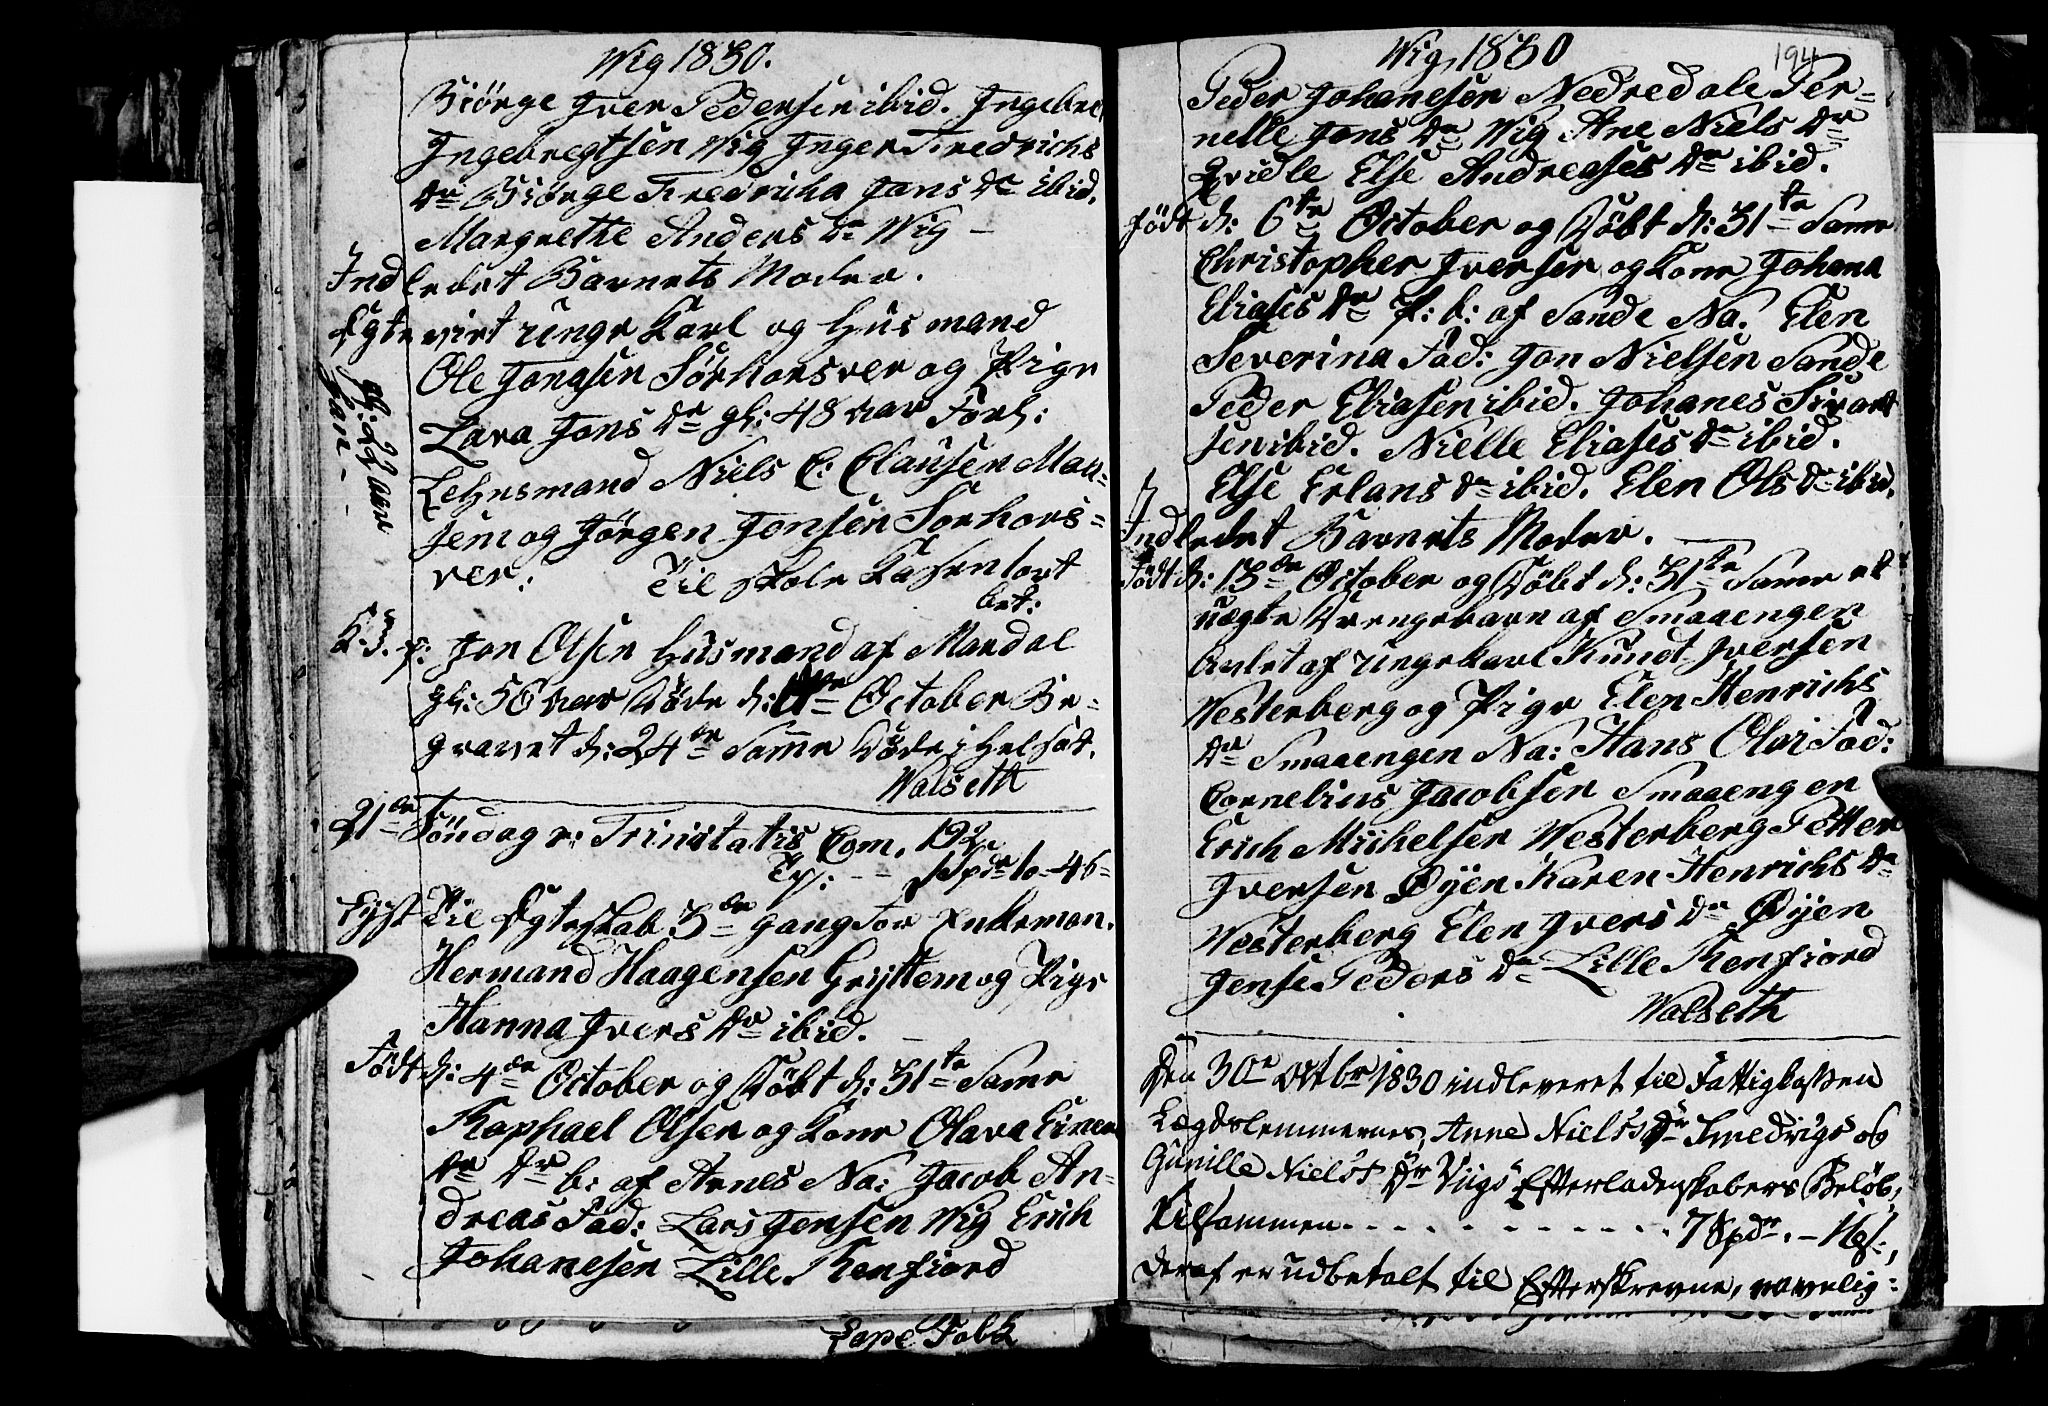 Wig 1830.
Biörge Iver Pedersen ibid. Ingebre
Ingebregtsen Wig Inger Fredrichs
dr Biörge Fredricka Jons dr ibid.
Margrethe Anders dr Wig –
Indledet Barnets Moder.
Egteviet unge Karl og Husmand
gl: 22 aar
han –
Ole Jonsen Sörhorsver og Pige
Lava Jons dr gl: 48 aar Forl:
Lehnsmand Niels C. Clausen Mar=
sem og Jörgen Jonsen Sorhors=
ver: Til Skole Kassen
bet:
K. 3. p: Jon Olsen Husmand af Mandal
gl: 56 aar Döde d: October Be=
gravet d: 24de Samme Döde i Helsot.
Walseth
21de Söndag p: Trinitatis Com. 192
Spdr 10–46–
Lyst Til Egteskab 3de gang for Enkeman.
Hermand Haagensen Gryttem og Pige
Hanna Ivers dr ibid. –
Födt d: 4de October og Döbt d: 31te Same
Raphael Olsen og Kone Olava Einer
dr b: af Arnes Na: Jacob An=
dreas Fad: Lars Jensen Wig Erich
Johanesen Lille Renfiord
Wig, 1830
194
Peder Johanesen Nedredale Per=
nelle Jons dr Wig Ane Niels dr
Qvidle Else Andreases dr ibid.
Födt d: 6te October og Döbt d: 31te Same
Christopher Iversen og Kone Johana
Eliases dr P: b: af Sande Na. Elen
Severina Fad: Jon Nielsen Sande
Peder Eliasen ibid. Johanes Sivart
sen ibid. Nielle Eliases dr ibid.
Else Erlans dr ibid. Elen Ols dr ibid.
Indledet Barnets Moder.
Födt d: 13de October og Döbt d: 31te Same et
uægte Drengebarn af Smaaengen
Avlet af ungekarl Knudt Iversen
Westerberg og Pige Elen Henrichs
dr Smaaengen Na: Hans Olai Fad:
Cornelius Jacobsen Smaaengen
Erich Michelsen Westerberg Petter
Iversen Øyen Karen Henrichs dr
Westerberg Elen Ivers dr Øyen
Jense Peders dr Lille Renfiord
Walseth
Den 30te Octbr 1830 indleveret til Fattigkassen
Lægdslemmernes, Anne Niels Dr Smedvigs og
Gunille Niels Dr Viigs Efterladenskabers Belöb,
tilsammen . . . . . . . . . 7 Spdr. – 16 s.,
Deraf er udbetalt til Efterskrevne, navnlig: